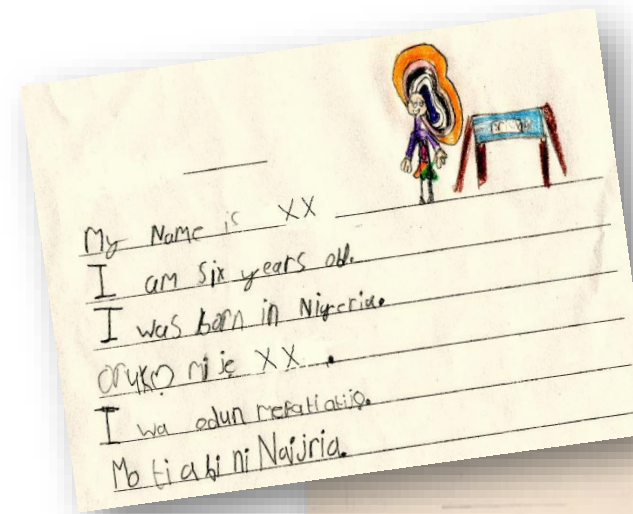 My Name is XX
I am six years old.
I was born in Nigeria.
oruko mi jẹ XX .
I wa odun
Mo ti a bi ni Naijria.